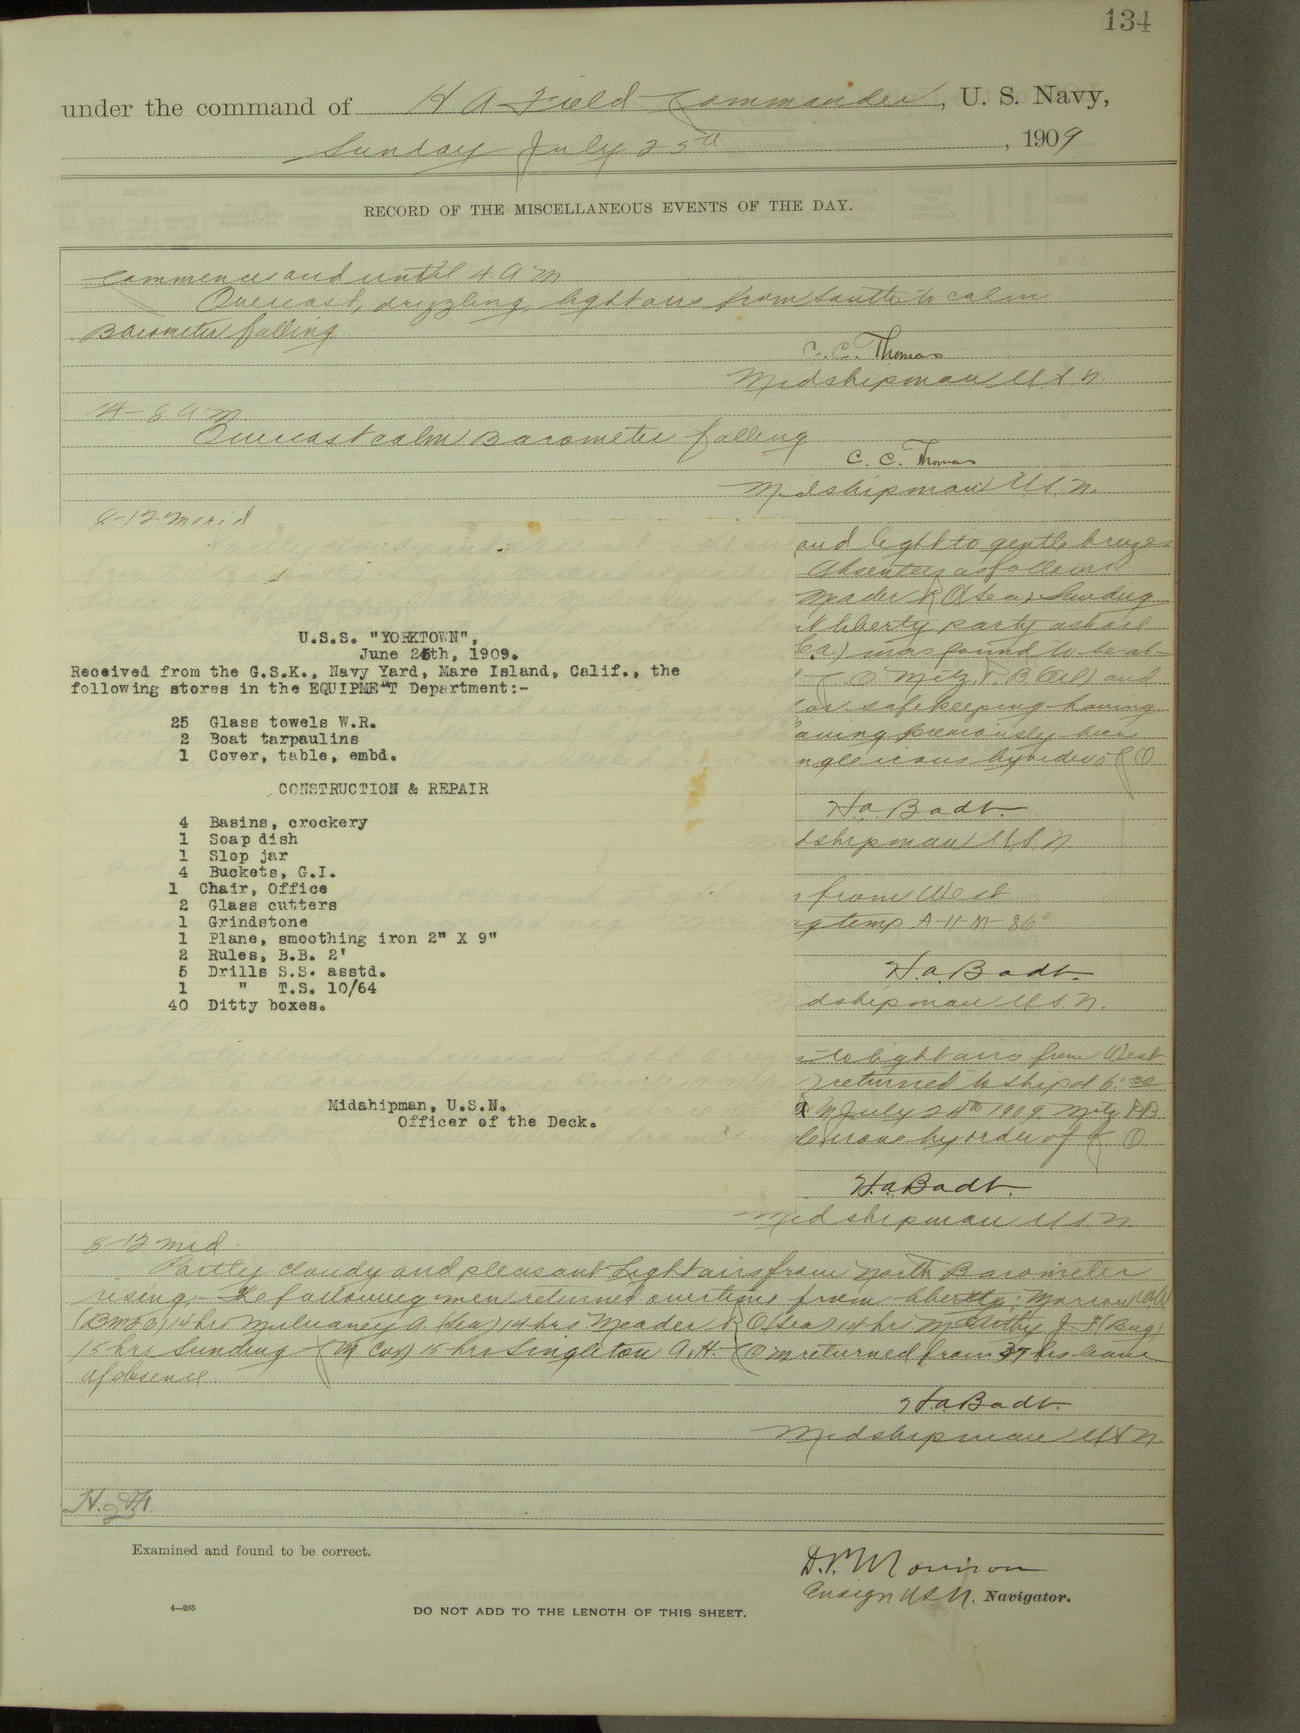 134
under the command of H A Field Commander, U. S. Navy,
Sunday July 25th, 1909
RECORD OF THE MISCELLANEOUS EVENTS OF THE DAY.
Commence and until 4 A M
Overcast, drizzling, light airs from South to calm
Barometer falling
C. C. Thomas
Midshipman U.S.N.
4-8 A M
Overcast calm Barometer falling
C. C. Thomas
Midshipman U.S.N.
8-12 Merid
and light to gentle breeze
Absentees as follows
Meader R O (Sea) Sunding
liberty party ashore
was found to be ab-
Metz. P. B (Oil) and
for safekeeping having
having previously been
ngle irons by order of C O
H.a. Badt.
dshipman U.S.N.
from West
mag temp A-11-M-86°
H.a. Badt.
dshipman U.S.N.
U.S.S. "YORKTOWN",
June 25th, 1909.
Received from the G.S.K., Navy Yard, Mare Island, Calif., the
following stores in the EQUIPMENT Department:-
25 Glass towels W.R.
2 Boat tarpaulins
1 Cover, table, embd.
CONSTRUCTION & REPAIR
4 Basins, crockery
1 Soap dish
1 Slop jar
4 Buckets, G.I.
1 Chair, Office
2 Glass cutters
1 Grindstone
1 Plane, smoothing iron 2" X 9"
2 Rules, B.B. 2'
5 Drills S.S. asstd.
1 " T.S. 10/64
40 Ditty boxes.
Midahipman, U.S.N.
Officer of the Deck.
to light airs from West
returned to ship at 6:30
M July 24th 1909. Metz P B
irons by order of C O
H.a. Badt.
Midshipman U.S.N.
8-12 Mid.
Partly cloudy and pleasant Light airs from North Barometer
rising. The following men returned overtime from liberty: Marion
14 hrs Mulvaney A. (Sea) 14 hrs Meader R O (Sea) 14 hrs McCarthy J. F (Bug)
15 hrs Sunding (M Cox) 15 hrs Singleton A. H. (O M returned from 37 hrs leave
of absence.
H.a. Badt.
Midshipman U.S.N.
Examined and found to be correct.
D.P. Morrison
Ensign U.S.N. Navigator.
4—265
DO NOT ADD TO THE LENGTH OF THIS SHEET.